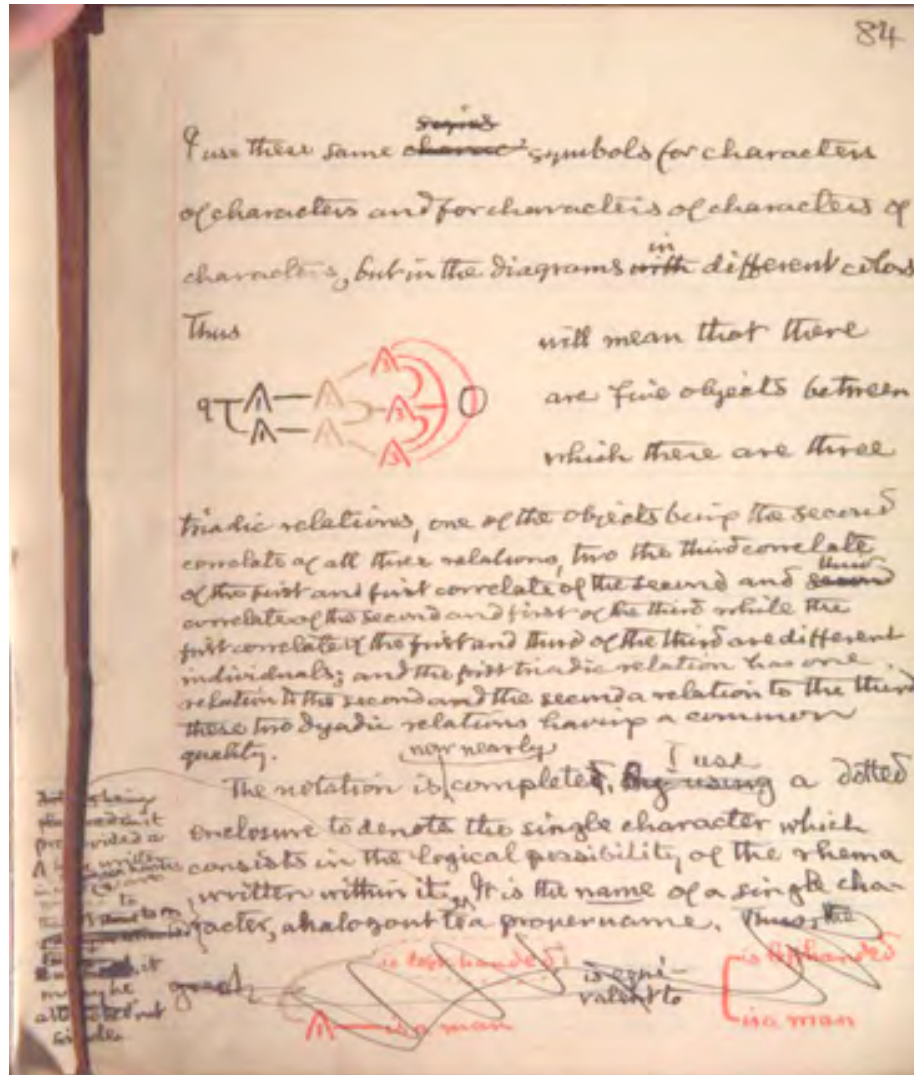 84
series
I use these same charac symbols for characters
of characters and for characters of characters of
in
characters, but in the diagrams with different colors
Thus
will mean that there
are five objects between
which there are three
triadic relations, one of the objects being the second
correlate of all three relations, two the third correlate
third
of the first and first correlate of the second and second
correlate of the second and first of the third while the
first correlate of the first and third of the third are different
individuals; and the first triadic relation has one
relation to the second and the second a relation to the third
these two dyadic relations having a common
quality.
now nearly
I use
The notation is complete. By using a dotted
enclosure to denote the single character which
consists in the logical possibility of the rhema
written within it. It is the name of a single cha-
racter, analogous to a proper name. Thus, the
is left handed
is a man
is equi-
valent to
is left handed
is a man
being
provided a
it
may be